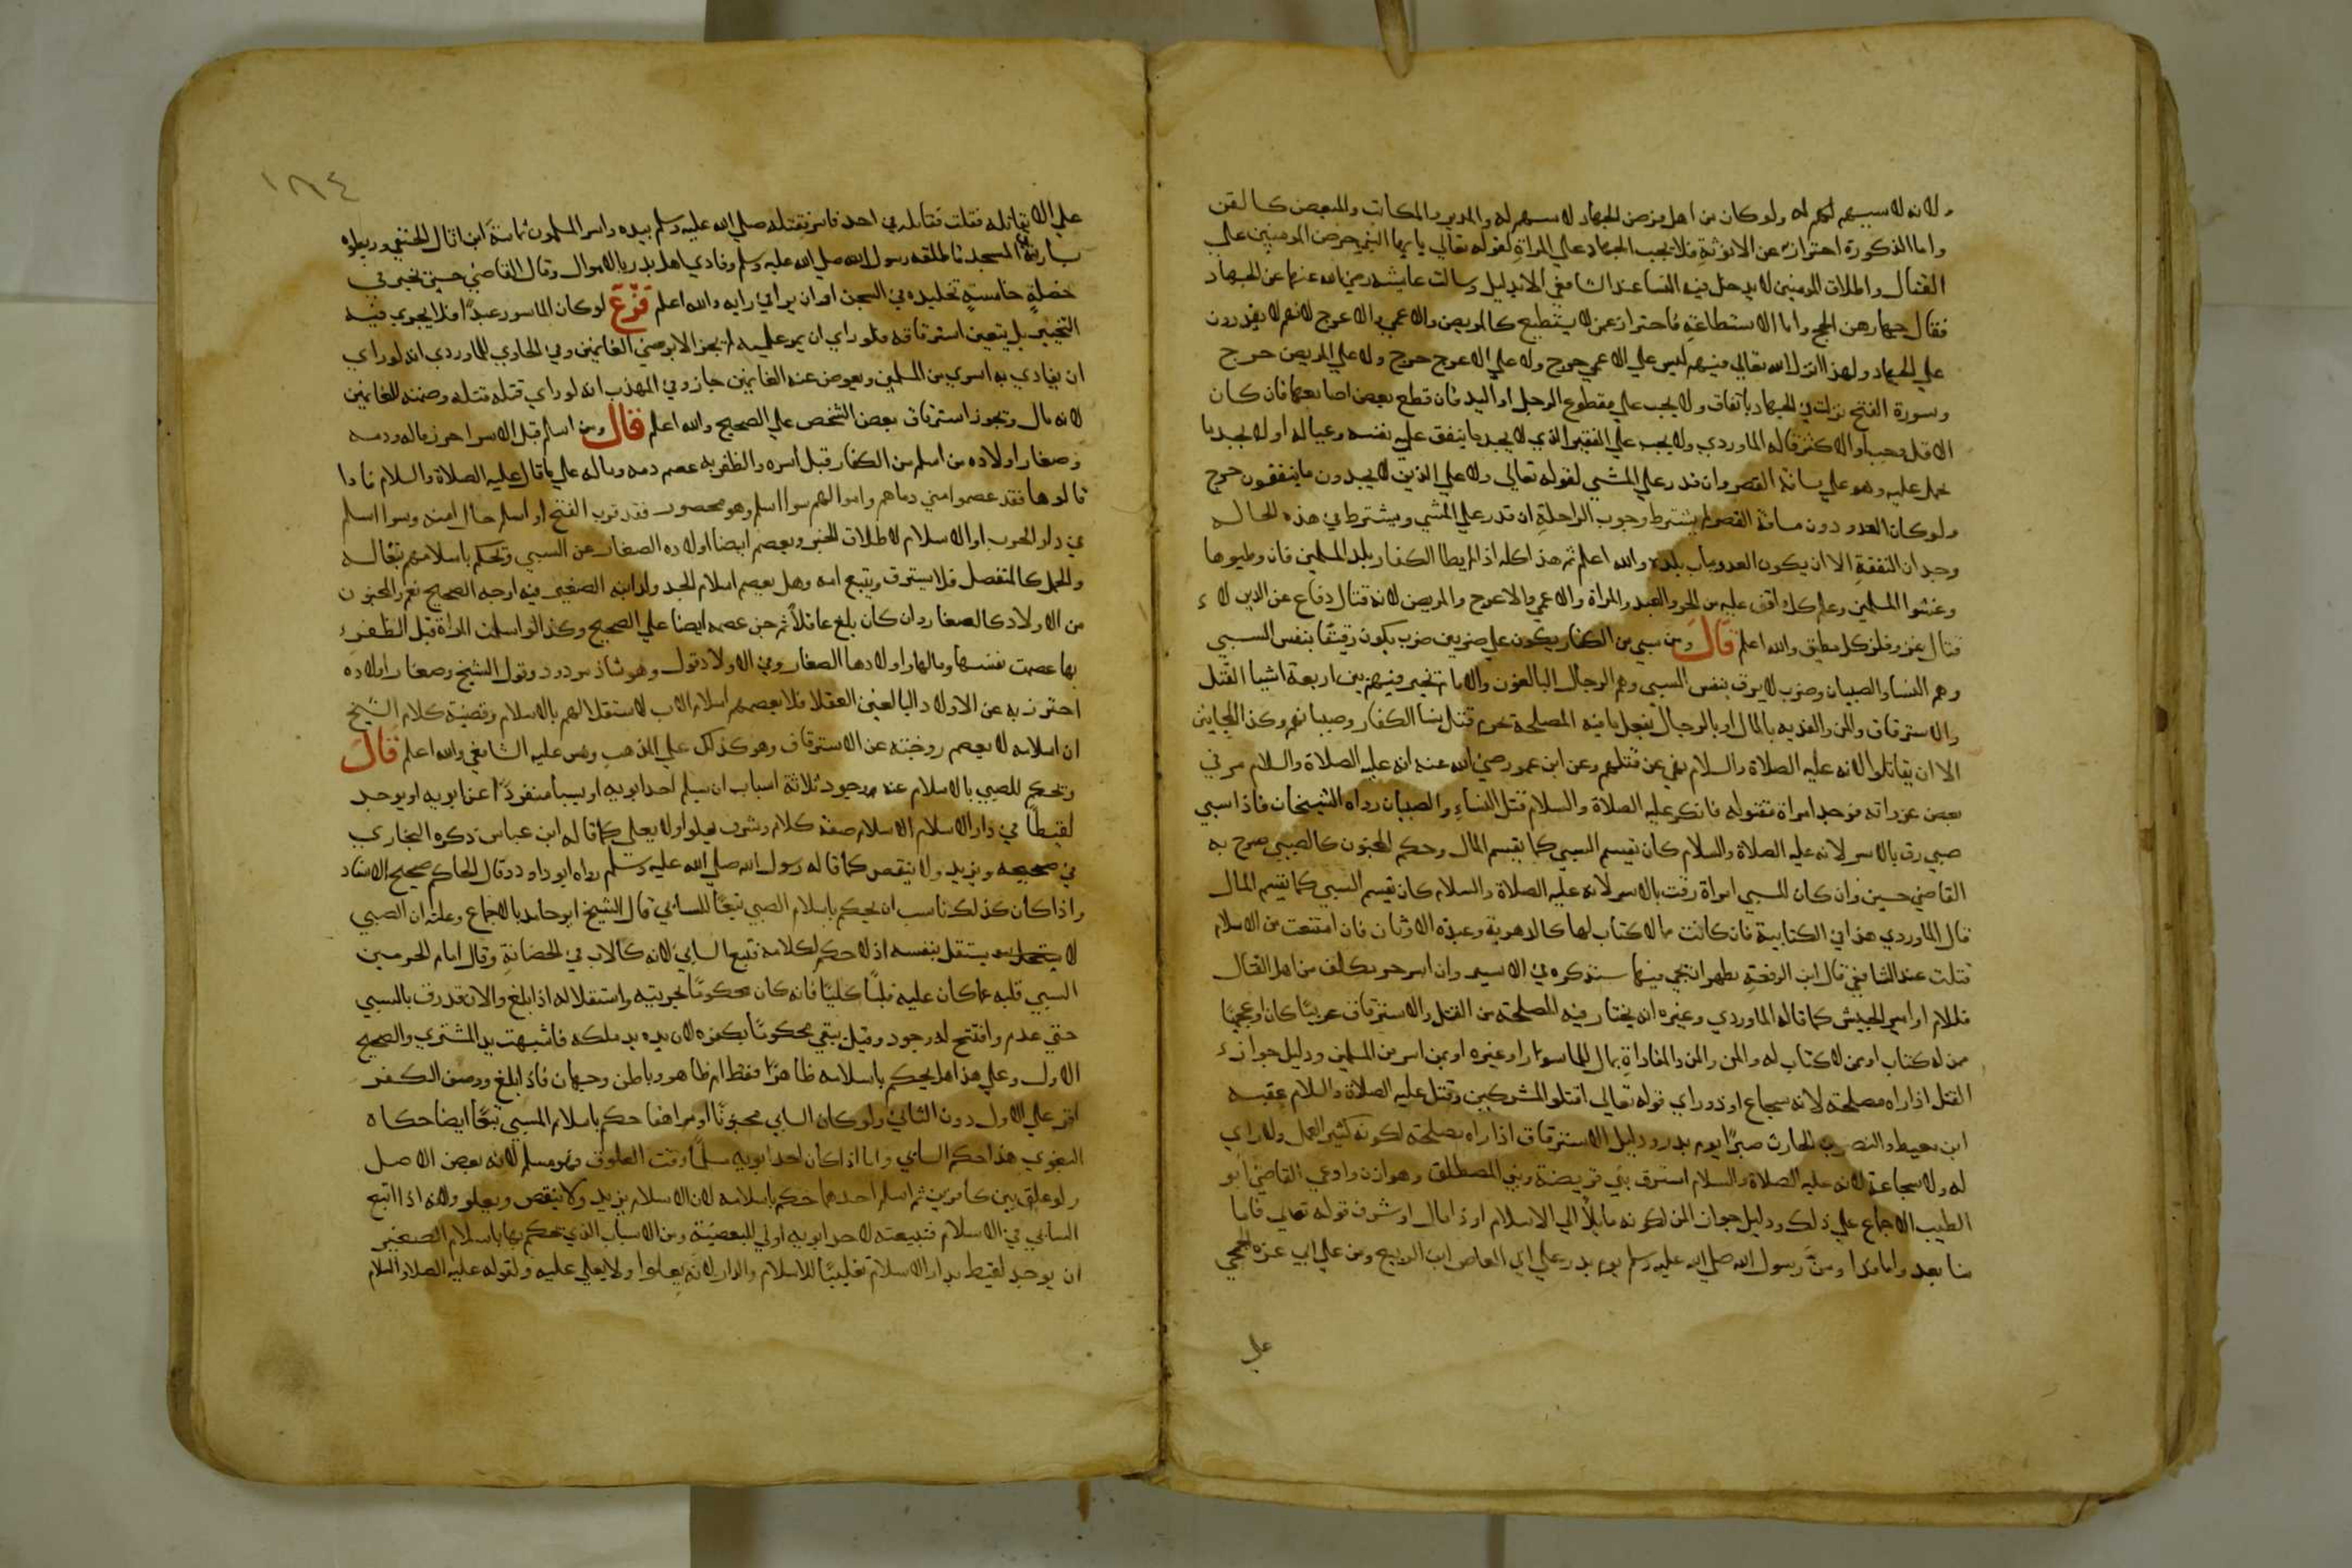 ولانه لا يسهم له ولو كان من اهل فرض الجهاد لاسهم له والمدبر والمكاتب والمبعض كالقن
واما الذكورة احتراز عن الانوثة فلا يجب الجهاد على المراة لقوله تعالي يا ايها النبي حرض المومنين علي
القتال واطلاق المومنين لا يدخل فيه النسا عند الشافعي الا بدليل وسالت عايشه رضي الله عنها عن الجهاد
فقال جهادهن الحج واما الاستطاعة فاحتراز عمن لا يستطيع كالمريض والاعمي والاعرج لانهم لا يقدرون
علي الجهاد ولهذا انزل الله تعالي فيهم ليس علي الاعمي حرج ولا علي الاعرج حرج ولا علي المريض حرج
وسورة الفتح نزلت في الجهاد باتفاق ولا يجب علي مقطوع الرجل او اليد فان قطع بعض اصابعهما فان كان
الاقل وجب او الاكثر قاله الماوردي ولا يجب علي الفقير الذي لا يجد ما ينفق علي نفسه وعياله او لا يجد ما
يحمل عليه وهو علي مسافة القصر وان قدر علي المشي لقوله تعالي ولا علي الذين لا يجدون ما ينفقون حرج
ولو كان العدو دون مسافة القصر لم يشترط وجوب الراحلة ان قدر علي المشي ويشترط في هذه الحاله
وجدان النفقة الا ان يكون العدو بباب بلده والله اعلم ثم هذا كله اذا لم يطا الكفار بلد المسلمين فان وطيوها
وغشوا المسلمين وعلم كل اقف عليه من الحر والعبد والمراة والاعمي والاعرج والمريض لانه قتال دفاع عن الدين لا
قتال غزو فلزم كل مطيق والله اعلم قال ومن سبي من الكفار يكون علي ضربين ضرب يكون رقيقا بنفس السبي
وهم النسا والصبيان وضرب لا يرق بنفس السبي وهم الرجال البالغون والامام مخير فيهم بين اربعة اشيا القتل
والاسترقاق والمن والفديه بالمال او بالرجال يفعل ما فيه المصلحة يحرم قتل نسا الكفار وصبيانهم وكذا المجانين
الا ان يقاتلوا لانه عليه الصلاة والسلام نهي عن قتلهم وعن ابن عمر رضي الله عنه انه عليه الصلاة والسلام مر في
بعض غزواته فوجد امراة مقتوله فانكر عليه الصلاة والسلام قتل النساء والصبيان رواه الشيخان فاذا سبي
صبي رق بالاسر لانه عليه الصلاة والسلام كان يقسم السبي كما يقسم المال وحكم المجنون كالصبي صرح به
القاضي حسين وان كان المسبي امراة رقت بالاسر لانه عليه الصلاة والسلام كان يقسم السبي كما يقسم المال
قال الماوردي هذا في الكتابية فان كانت مما لا كتاب لها كالدهرية وعبدة الاوثان فان امتنعت من الاسلام
قتلت عند الشافعي قال ابن الرفعة يظهر ان يجي فيها سنذكره في الاسير وان اسر حر مكلف من اهل القتال
فللامام او امير الجيش كما قاله الماوردي وغيره ان يختار فيه المصلحة من القتل والاسترقاق عربيا كان او عجميا
ممن له كتاب او ممن لا كتاب له والمن والمن والمفاداة بمال للماسور او غيره او بمن اسر من المسلمين ودليل جواز
القتل اذا راه مصلحة لانه شجاع او ذو راي قوله تعالي اقتلوا المشركين وقتل عليه الصلاة والسلام عقبه
ابن معيط والنضر بن الحارث صبرا يوم بدر ودليل الاسترقاق اذا راه مصلحة لكونه كثير العمل ولا راي
له ولا شجاعة لانه عليه الصلاة والسلام استرق بني قريضة وبني المصطلق وهوازن وادعي القاضي ابو
الطيب الاجماع علي ذلك ودليل جواز المن لكونه مايلا الي الاسلام او ذا مال او شرف قوله تعالي فاما
منا بعد واما فدا ومن رسول الله صلي الله عليه وسلم يوم بدر علي ابي العاص ابن الربيع ومن علي ابي عزه الجمحي
علي
١٨٤
علي الا يقاتله فقلت فقاتله في احد فاسر فقتله صلي الله عليه وسلم بيده واسر المسلمون ثمامة ابن اثال الحنفي وربطوه
بسارية المسجد فاطلقه رسول الله صلي الله عليه وسلم وفادي اهل بدر بالاموال وقال القاضي حسين يخير في
خصلة خامسة تخليده في السجن او ان يراي رايه والله اعلم فرع لو كان الماسور عبدا فلا يجري فيه
التخيير بل يتعين استرقاقه فلو راي ان يمر عليه لم يجز الا برضي الغانمين وفي الحاوي للماوردي انه لو راي
ان يفادي به اسري من المسلمين ويعوض عنه الغانمين جاز وفي المهذب انه لو راي قتله قتله وضمنه للغانمين
لانه مال ويجوز استرقاق بعض الشخص علي الصحيح والله اعلم قال ومن اسلم قبل الاسر احرز ماله ودمه
وصغار اولاده من اسلم من الكفار قبل اسره والظفر به عصم دمه وماله علي ما قال عليه الصلاة والسلام فاذا
قالوها فقد عصموا مني دماهم واموالهم سوا اسلم وهو محصور فقد قرب الفتح او اسلم حال امنه وسوا اسلم
في دار الحرب او الاسلام لاطلاق الخبر ويعصم ايضا اولاده الصغار عن السبي ويحكم باسلامهم تبعا له
والحمل كالمنفصل فلا يسترق ويتبع امه وهل يعصم اسلام الجد ولد ابنه الصغير فيه اوجه الصحيح نعم والمجنون
من الاولاد كالصغار وان كان بلغ عاقلا ثم جن عصمه ايضا علي الصحيح وكذا لو اسلمت المراة قبل الظفر
بها عصمت نفسها ومالها واولادها الصغار وفي الاولاد قول وهو شاذ مردود وقول الشيخ وصغار اولاده
احترز به عن الاولاد البالغين العقلا فلا يعصمهم اسلام الاب لاستقلالهم بالاسلام وقضية كلام الشيخ
ان اسلامه لا يعصم زوجته عن الاسترقاق وهو كذلك علي المذهب ونص عليه الشافعي والله اعلم قال
ويحكم للصبي بالاسلام عند وجود ثلاثة اسباب ان يسلم احد ابويه او يسبا منفردا عن ابويه او يوجد
لقيطا في دار الاسلام الاسلام صفة كلام وشرف يعلوا ولا يعلي كما قاله ابن عباس ذكره البخاري
في صحيحه ويزيد ولا ينقص كما قاله رسول الله صلي الله عليه وسلم رواه ابو داود وقال الحاكم صحيح الاسناد
واذا كان كذلك ناسب ان يحكم باسلام الصبي تبعا للسابي قال الشيخ ابو حامد بالاجماع وعلته ان الصبي
لا يستقل بنفسه اذ لا حكم لكلامه فتبع السابي لانه كالاب في الحضانة وقال امام الحرمين
السبي قلبه عما كان عليه قلبا كليا فانه كان محكوما بحريته واستقلاله اذا بلغ والان قد رق بالسبي
حتي عدم وافتتح له وجود وقيل يبقي محكوما بكفره لان يده يد ملكه فاشبهت يد المشتري والصحيح
الاول وعلي هذا هل يحكم باسلامه ظاهرا فقط ام ظاهر وباطن وجهان فاذا بلغ ووصف الكفر
اقر علي الاول دون الثاني ولو كان السابي مجنونا او مراهقا حكم باسلام المسبي تبعا ايضا حكاه
البغوي هذا حكم السابي واما اذا كان احد ابويه مسلما وقت العلوق فهو مسلم لانه بعض الاصل
ولو علق بين كافرين ثم اسلم احدهما حكم باسلامه لان الاسلام يزيد ولا ينقص ويعلو ولانه اذا اتبع
السابي في الاسلام فتبيعته لاحد ابويه اولي للبعضية ومن الاسباب الذي يحكم بها باسلام الصغير
ان يوجد لقيط بدار الاسلام تغليبا للاسلام والدار لانه يعلوا ولا يعلي عليه ولقوله عليه الصلاة والسلام